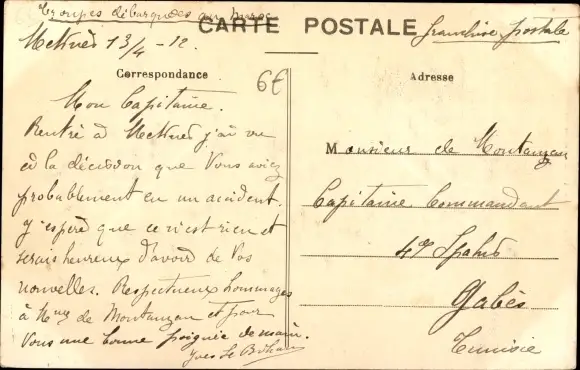 Troupes débarquées au Maroc
CARTE POSTALE
franchise postale
Meknès 13/4 - 12.
Correspondance
6€
Adresse
Mon Capitaine.
Rentré à Meknès j'ai vu
à la décision que Vous aviez
probablement eu un accident.
J'espère que ce n'est rien et
serais heureux d'avoir de Vos
nouvelles. Respectueux hommages
à Mme de Montauzan et pour
Vous une bonne poignée de main.
Yves Le
Monsieur de Montauzan
Capitaine Commandant
4e Spahis
Gabès
Tunisie